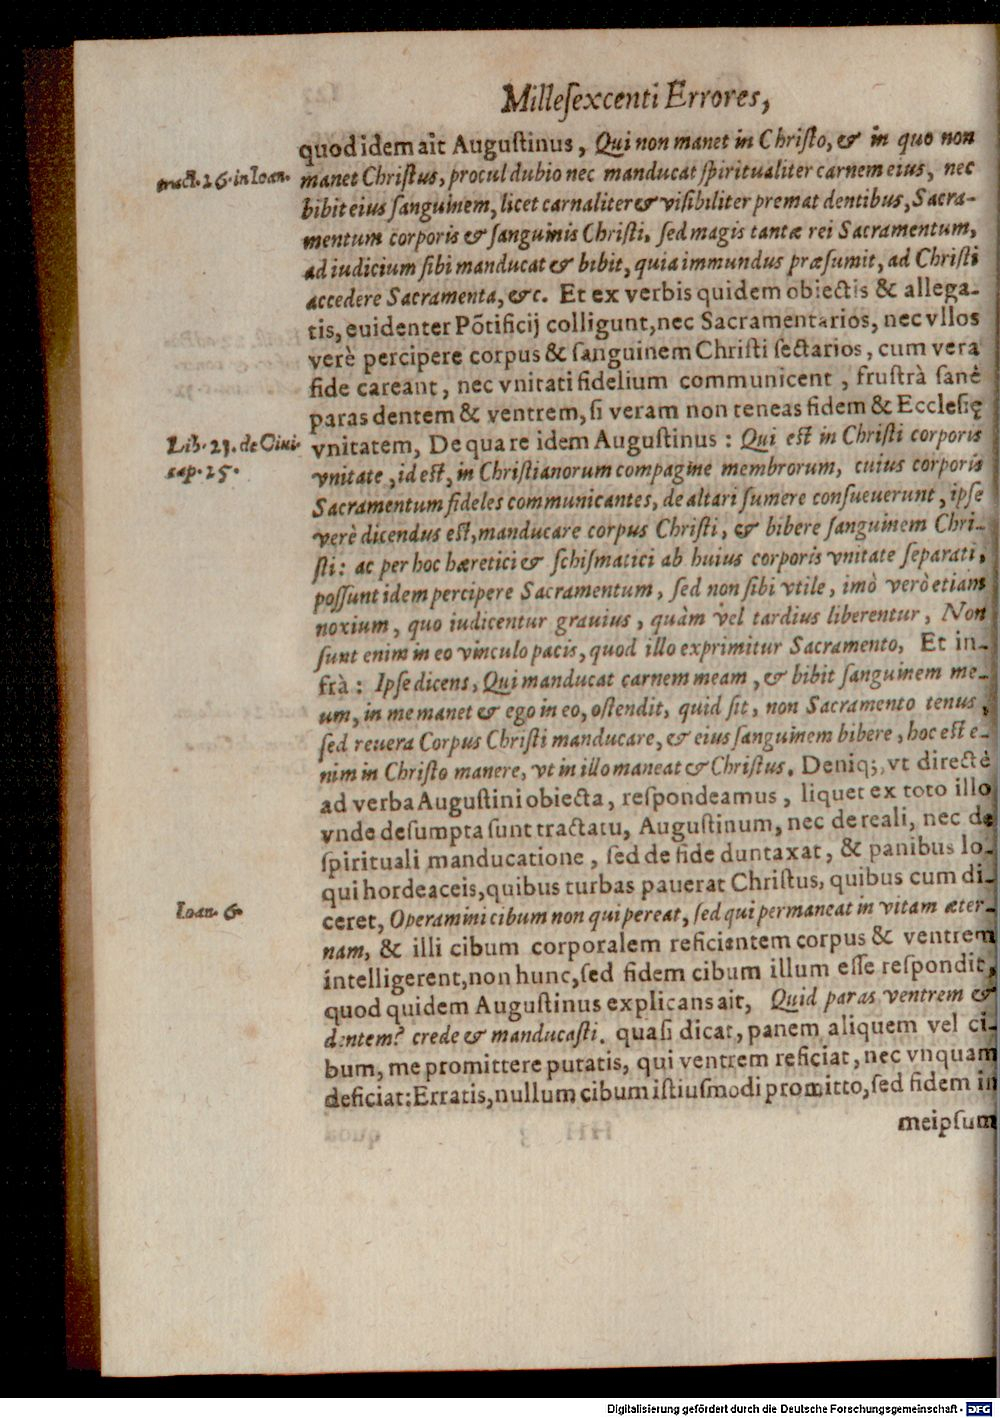 Milleſexcenti Errores,
quod idem ait Auguſtinus, Qui non manet in Chriſto, & in quo non
tract. 26. in Ioan.
manet Chriſtus, procul dubio nec manducat ſpiritualiter carnem eius, nec
bibit eius ſanguinem, licet carnaliter & viſibiliter premat dentibus, Sacra-
mentum corporis & ſanguinis Chriſti, ſed magis tantæ rei Sacramentum,
ad iudicium ſibi manducat & bibit, quia immundus præſumit, ad Chriſti
accedere Sacramenta, &c. Et ex verbis quidem obiectis & allega-
tis, euidenter Põtificij colligunt, nec Sacramentarios, nec vllos
verè percipere corpus & ſanguinem Chriſti ſectarios, cum vera
fide careant, nec vnitati fidelium communicent, fruſtrà ſanè
paras dentem & ventrem, ſi veram non teneas fidem & Eccleſię
Lib. 21. de Ciui.
cap. 25.
vnitatem, De qua re idem Auguſtinus: Qui eſt in Chriſti corporis
vnitate, id eſt, in Chriſtianorum compagine membrorum, cuius corporis
Sacramentum fideles communicantes, de altari ſumere conſueuerunt, ipſe
verè dicendus eſt, manducare corpus Chriſti, & bibere ſanguinem Chri-
ſti: ac per hoc hæretici & ſchiſmatici ab huius corporis vnitate ſeparati,
poſſunt idem percipere Sacramentum, ſed non ſibi vtile, imò verò etiam
noxium, quo iudicentur grauius, quàm vel tardius liberentur, Non
ſunt enim in eo vinculo pacis, quod illo exprimitur Sacramento, Et in-
frà: Ipſe dicens, Qui manducat carnem meam, & bibit ſanguinem me-
um, in me manet & ego in eo, oſtendit, quid ſit, non Sacramento tenus,
ſed reuera Corpus Chriſti manducare, & eius ſanguinem bibere, hoc eſt e-
nim in Chriſto manere, vt in illo maneat & Chriſtus. Deniq;, vt directè
ad verba Auguſtini obiecta, reſpondeamus, liquet ex toto illo
vnde deſumpta ſunt tractatu, Auguſtinum, nec de reali, nec de
ſpirituali manducatione, ſed de fide duntaxat, & panibus lo-
qui hordeaceis, quibus turbas pauerat Chriſtus, quibus cum di-
Ioan. 6.
ceret, Operamini cibum non qui pereat, ſed qui permaneat in vitam æter-
nam, & illi cibum corporalem reficientem corpus & ventrem
intelligerent, non hunc, ſed fidem cibum illum eſſe reſpondit,
quod quidem Auguſtinus explicans ait, Quid paras ventrem &
dentem? crede & manducaſti. quaſi dicat, panem aliquem vel ci-
bum, me promittere putatis, qui ventrem reficiat, nec vnquam
deficiat: Erratis, nullum cibum iſtiuſmodi promitto, ſed fidem in
meipſum
Digitalisierung gefördert durch die Deutsche Forschungsgemeinschaft - DFG